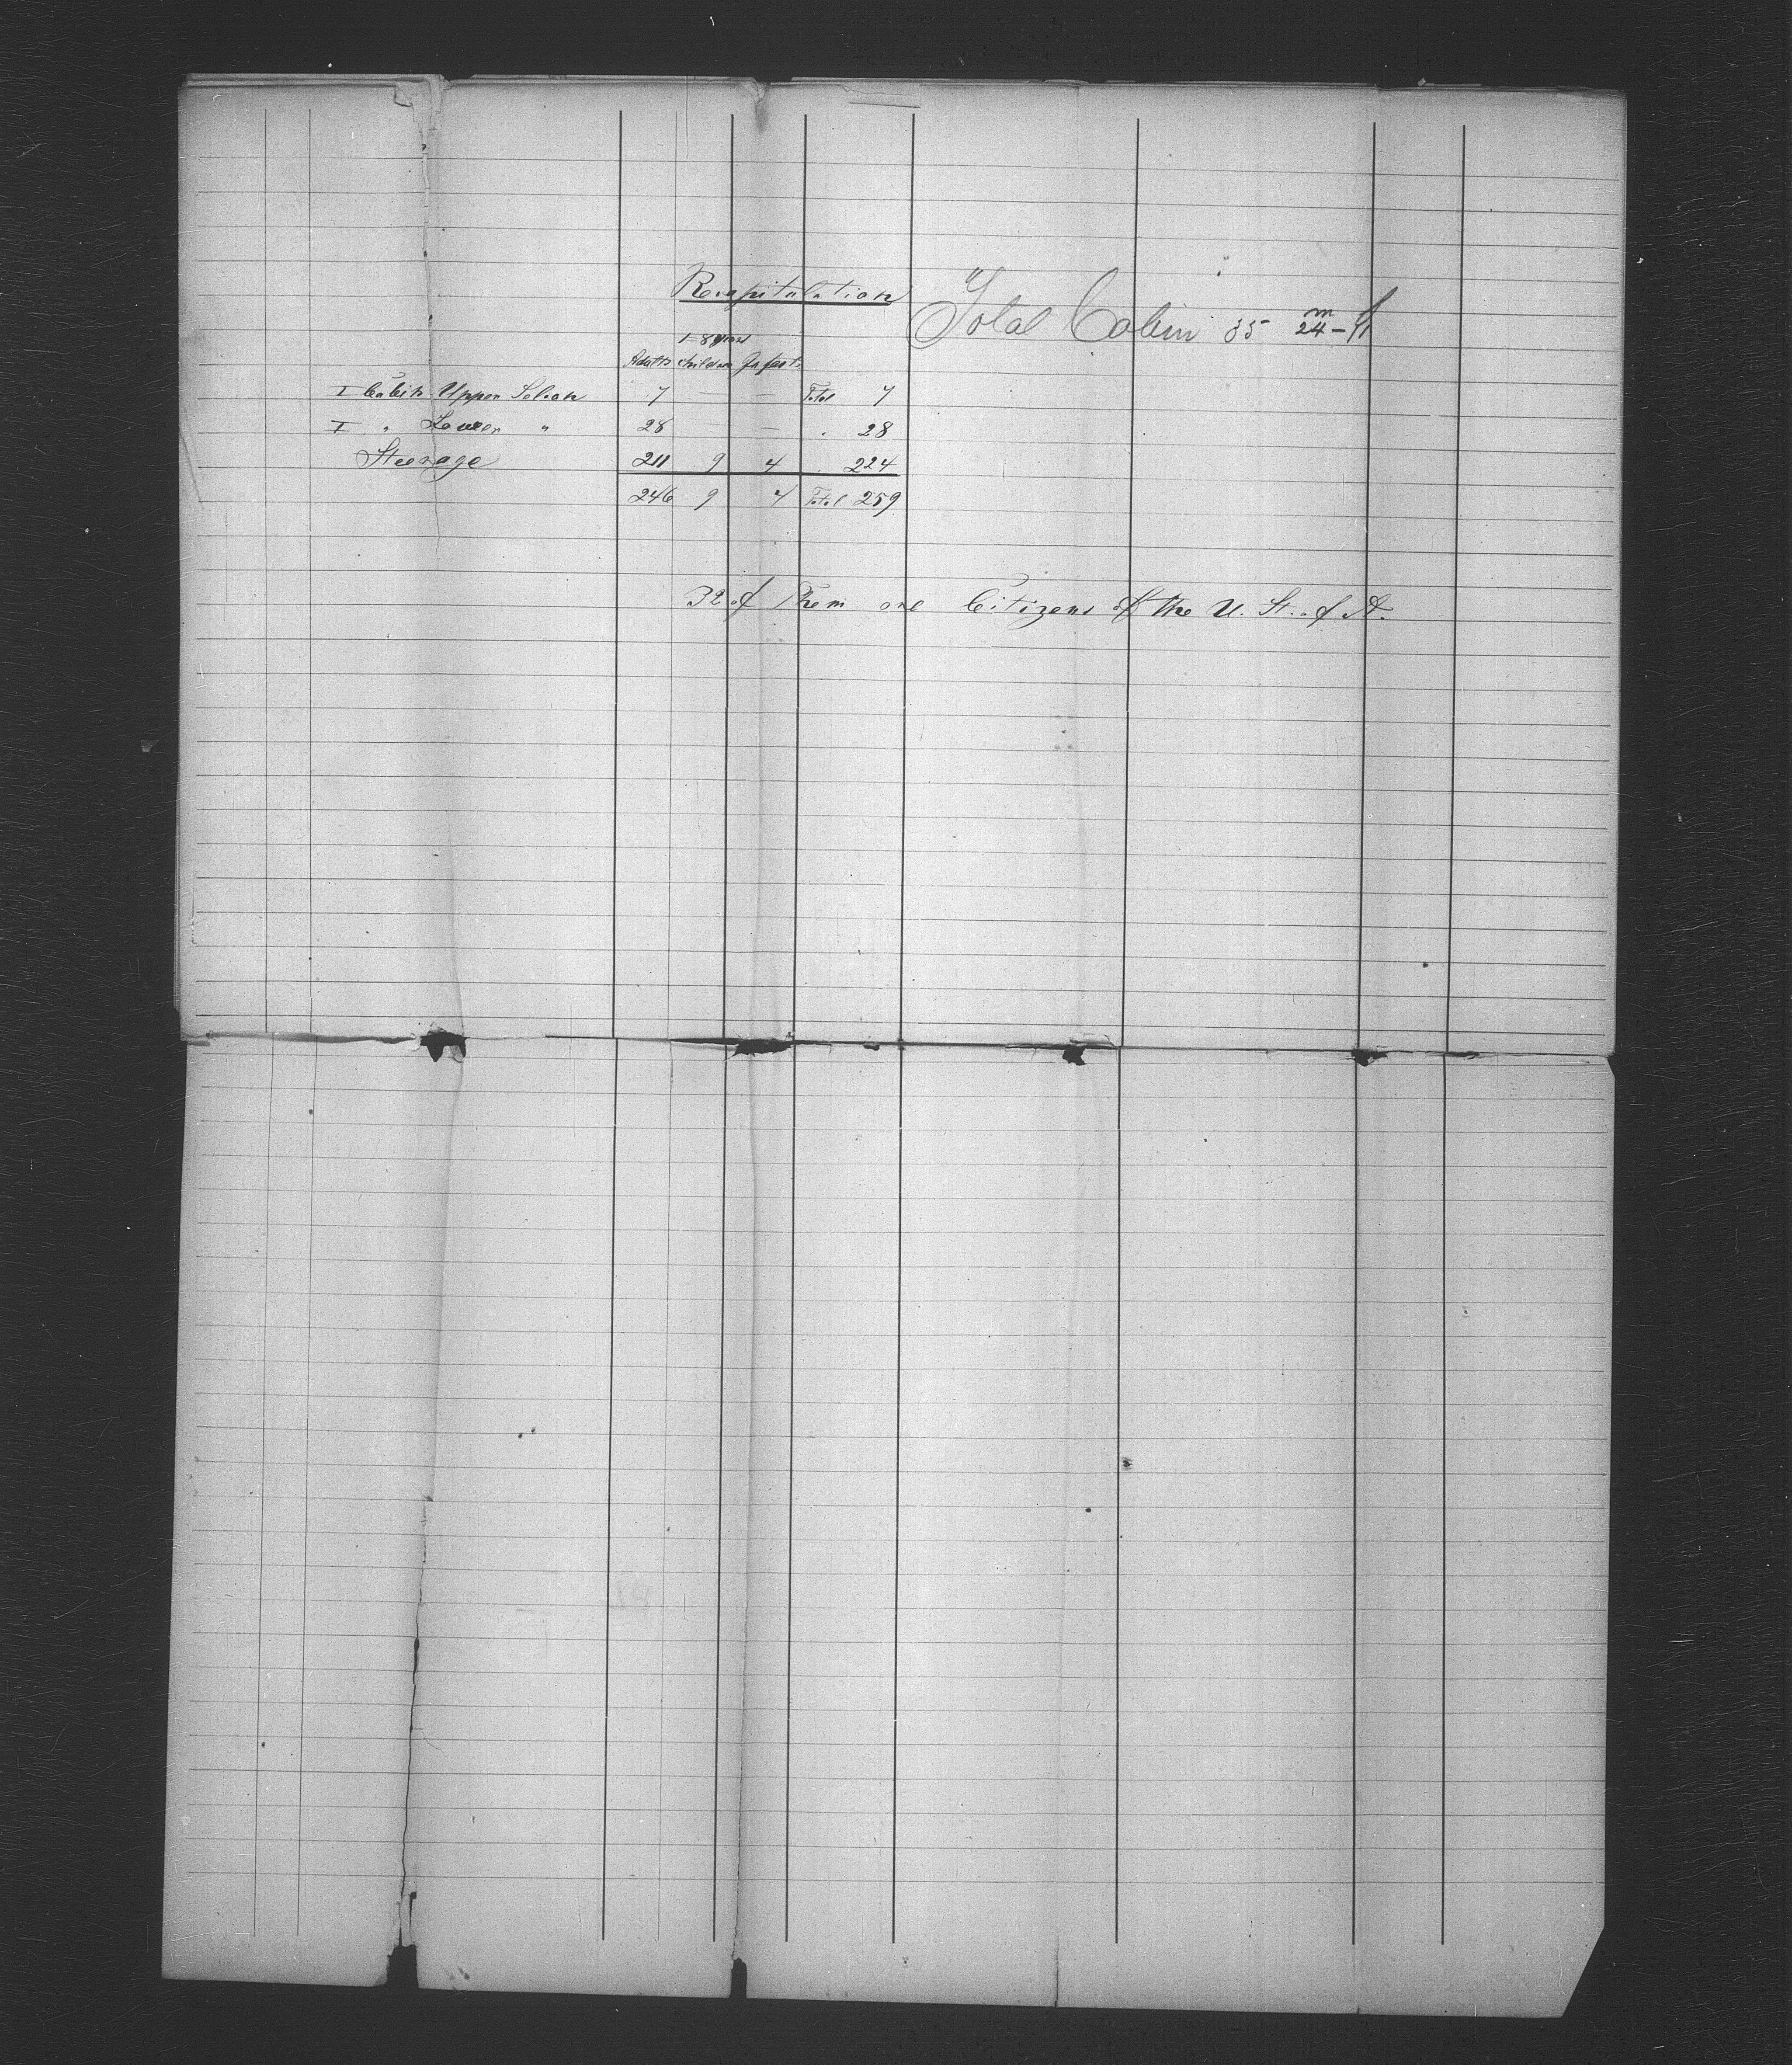 Recapitulation
Total Cabin 35 m 24 - 11
1-8 years
Adults children Infants
I Cabin Upper Saloon 7 — — Total 7
I " Lower " 28 — — " 28
Steerage 211 9 4 " 224
246 9 4 Total 259
32 of Them are Citizens of the U. St. of A.